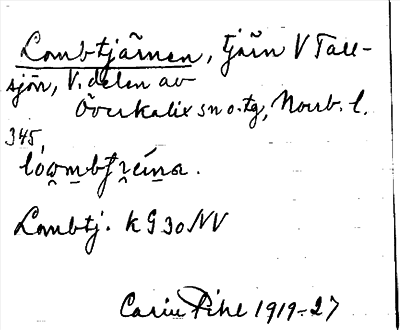 Lombtjärnen, tjärn V Tall-
sjön, V. delen av
Överkalix sn o. tg, Norrb. l.
345,
Lombtj. KG 30 NV
Carin Pihl 1919-27